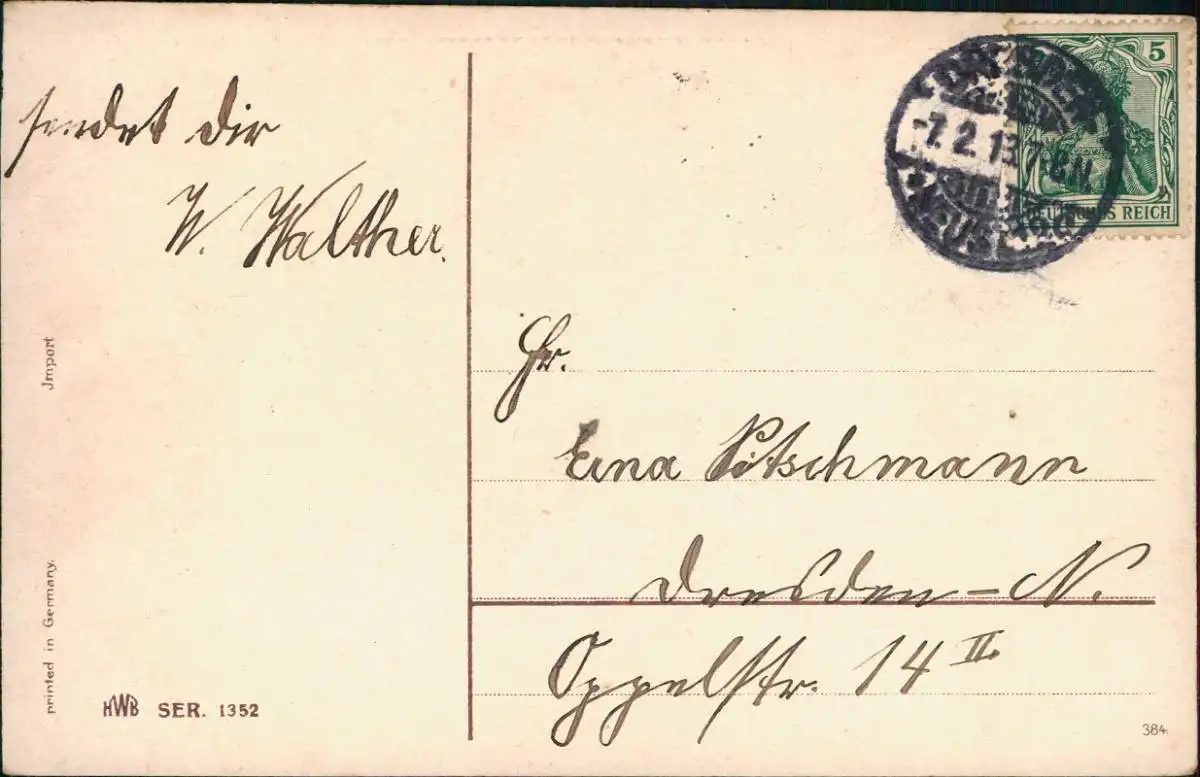 sendet dir
W. Walther.
Import
printed in Germany.
HWB SER. 1352
5
DEUTSCHES REICH
DRESDEN
-7.2.13. 7-8N.
Fr.
Erna Pitschmann
Dresden-N.
Oppelstr. 14 II.
384.